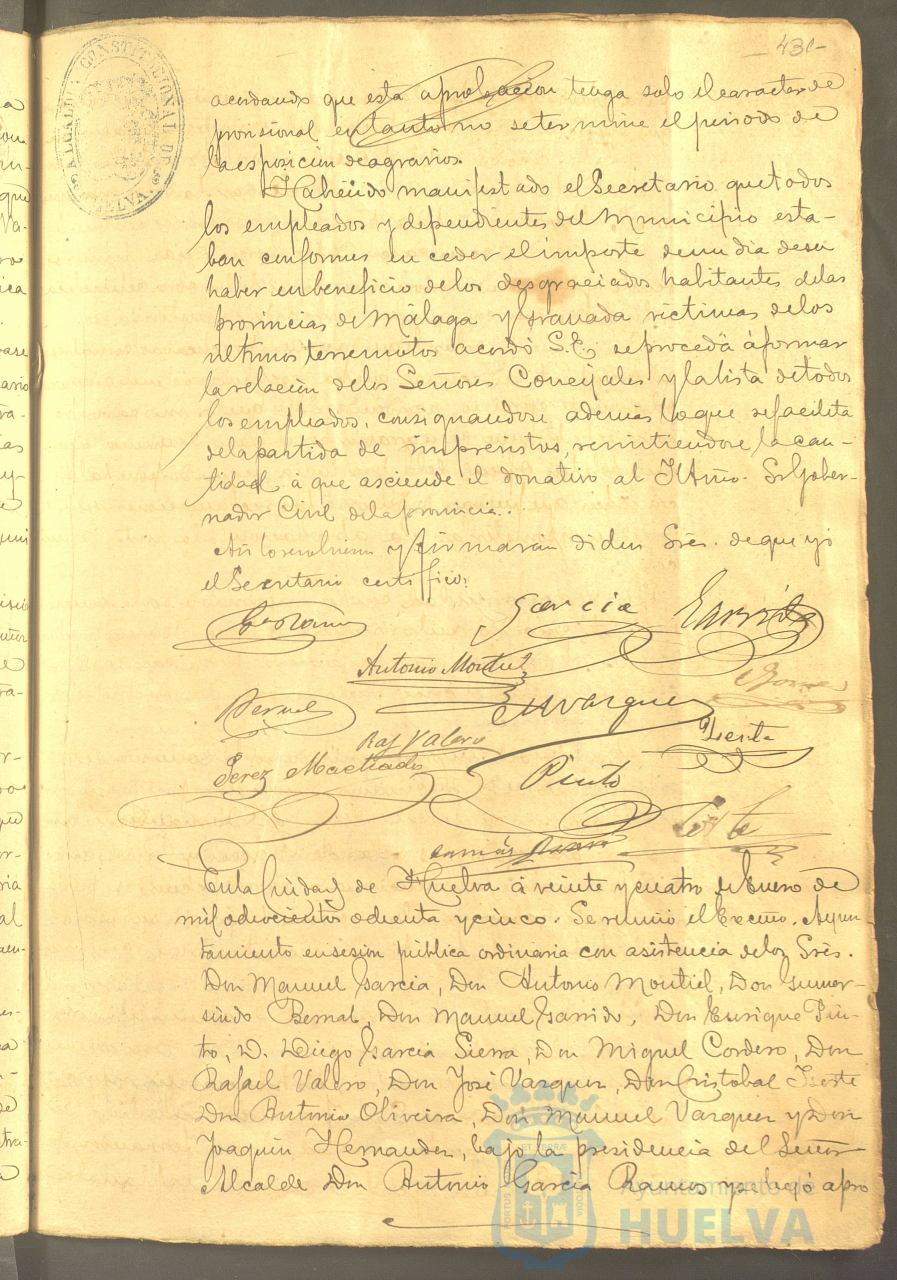 -431-
ALCALDIA CONSTITUCIONAL DE HUELVA.
acordando que esta aprobacion tenga solo el caracter de
provisional en tanto no se termine el periodo de
la esposicion de agravios.
Habiendo manifestado el Secretario que todos
los empleados y dependientes del Municipio esta-
ban conformes en ceder el importe de un dia de su
haber en beneficio de los desgraciados habitantes de las
provincias de Málaga y Granada victimas de los
ultimos terremotos acordó S.E. se proceda á formar
la relacion de los Señores Concejales y la lista de todos
los empleados, consignandose además lo que se facilita
de la partida de imprevistos, remitiendose la can-
tidad á que asciende el donativo al Iltmo. Sr Gober-
nador Civil de la provincia.
Asi lo resolvieron y firmarán dichos Sres. de que yo
el Secretario certifico.
Garcia Garrido
Antonio Montiel
Bernal M Vazquez
Raf Valero Yserte
Perez Machado Pinto
En la Ciudad de Huelva á veinte y cuatro de Enero de
mil ochocientos ochenta y cinco. Se reunió el Excmo. Ayun-
tamiento en sesion pública ordinaria con asistencia de los Sres.
Don Manuel Garcia, Don Antonio Montiel, Don Gumer-
sindo Bernal, Don Manuel Garrido, Don Enrique Pin-
to, D. Diego Garcia Sierra, Don Miguel Cordero, Don
Rafael Valero, Don José Vazquez, Don Cristobal Yserte
Don Antonio Oliveira, Don Manuel Vazquez y Don
Joaquin Hernandez, bajo la presidencia del Señor
Alcalde Don Antonio Garcia Ramos y se leyó apro
Ayuntamiento de
HUELVA